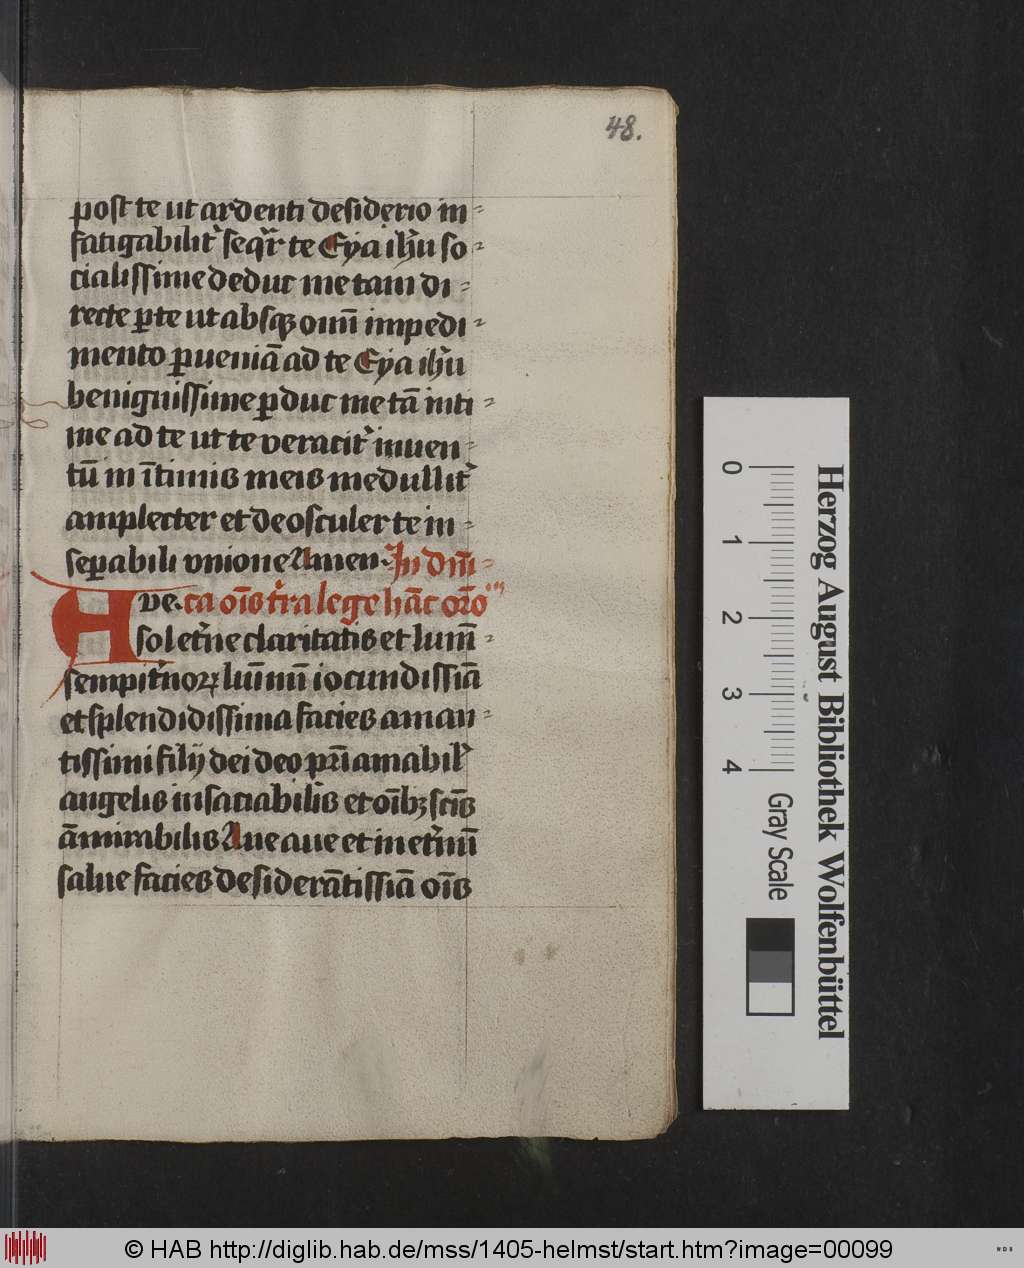 48.
post te ut ardenti desiderio in-
fatigabilit᷑ seqr̄ te Eya ih̄u so-
cialissime deduc me tam di-
recte ꝑ te ut absqꝫ omī impedi-
mento ꝑueniā ad te Eya ih̄u
benignissime ꝑduc me tā inti-
me ad te ut te veracit᷑ inuen-
tū in ītimis meis medullit᷑
amplecter et deosculer te in-
seꝑabili vnione Amen. In dnī-
Ave. ca oīs fr̄a lege hāc orōeм
sol et᷑ne claritatis et lumī-
sempit᷑noꝝ luīnū iocundissīa
et splendidissima facies aman-
tissimi filij dei deo pr̄i amabil᷑
angelis insaciabil᷑s et oībꝫ scīs
āmirabilis Aue aue et in et᷑nū
salue facies desiderātissīa oīs
Herzog August Bibliothek Wolfenbüttel
0 1 2 3 4 Gray Scale
© HAB http://diglib.hab.de/mss/1405-helmst/start.htm?image=00099